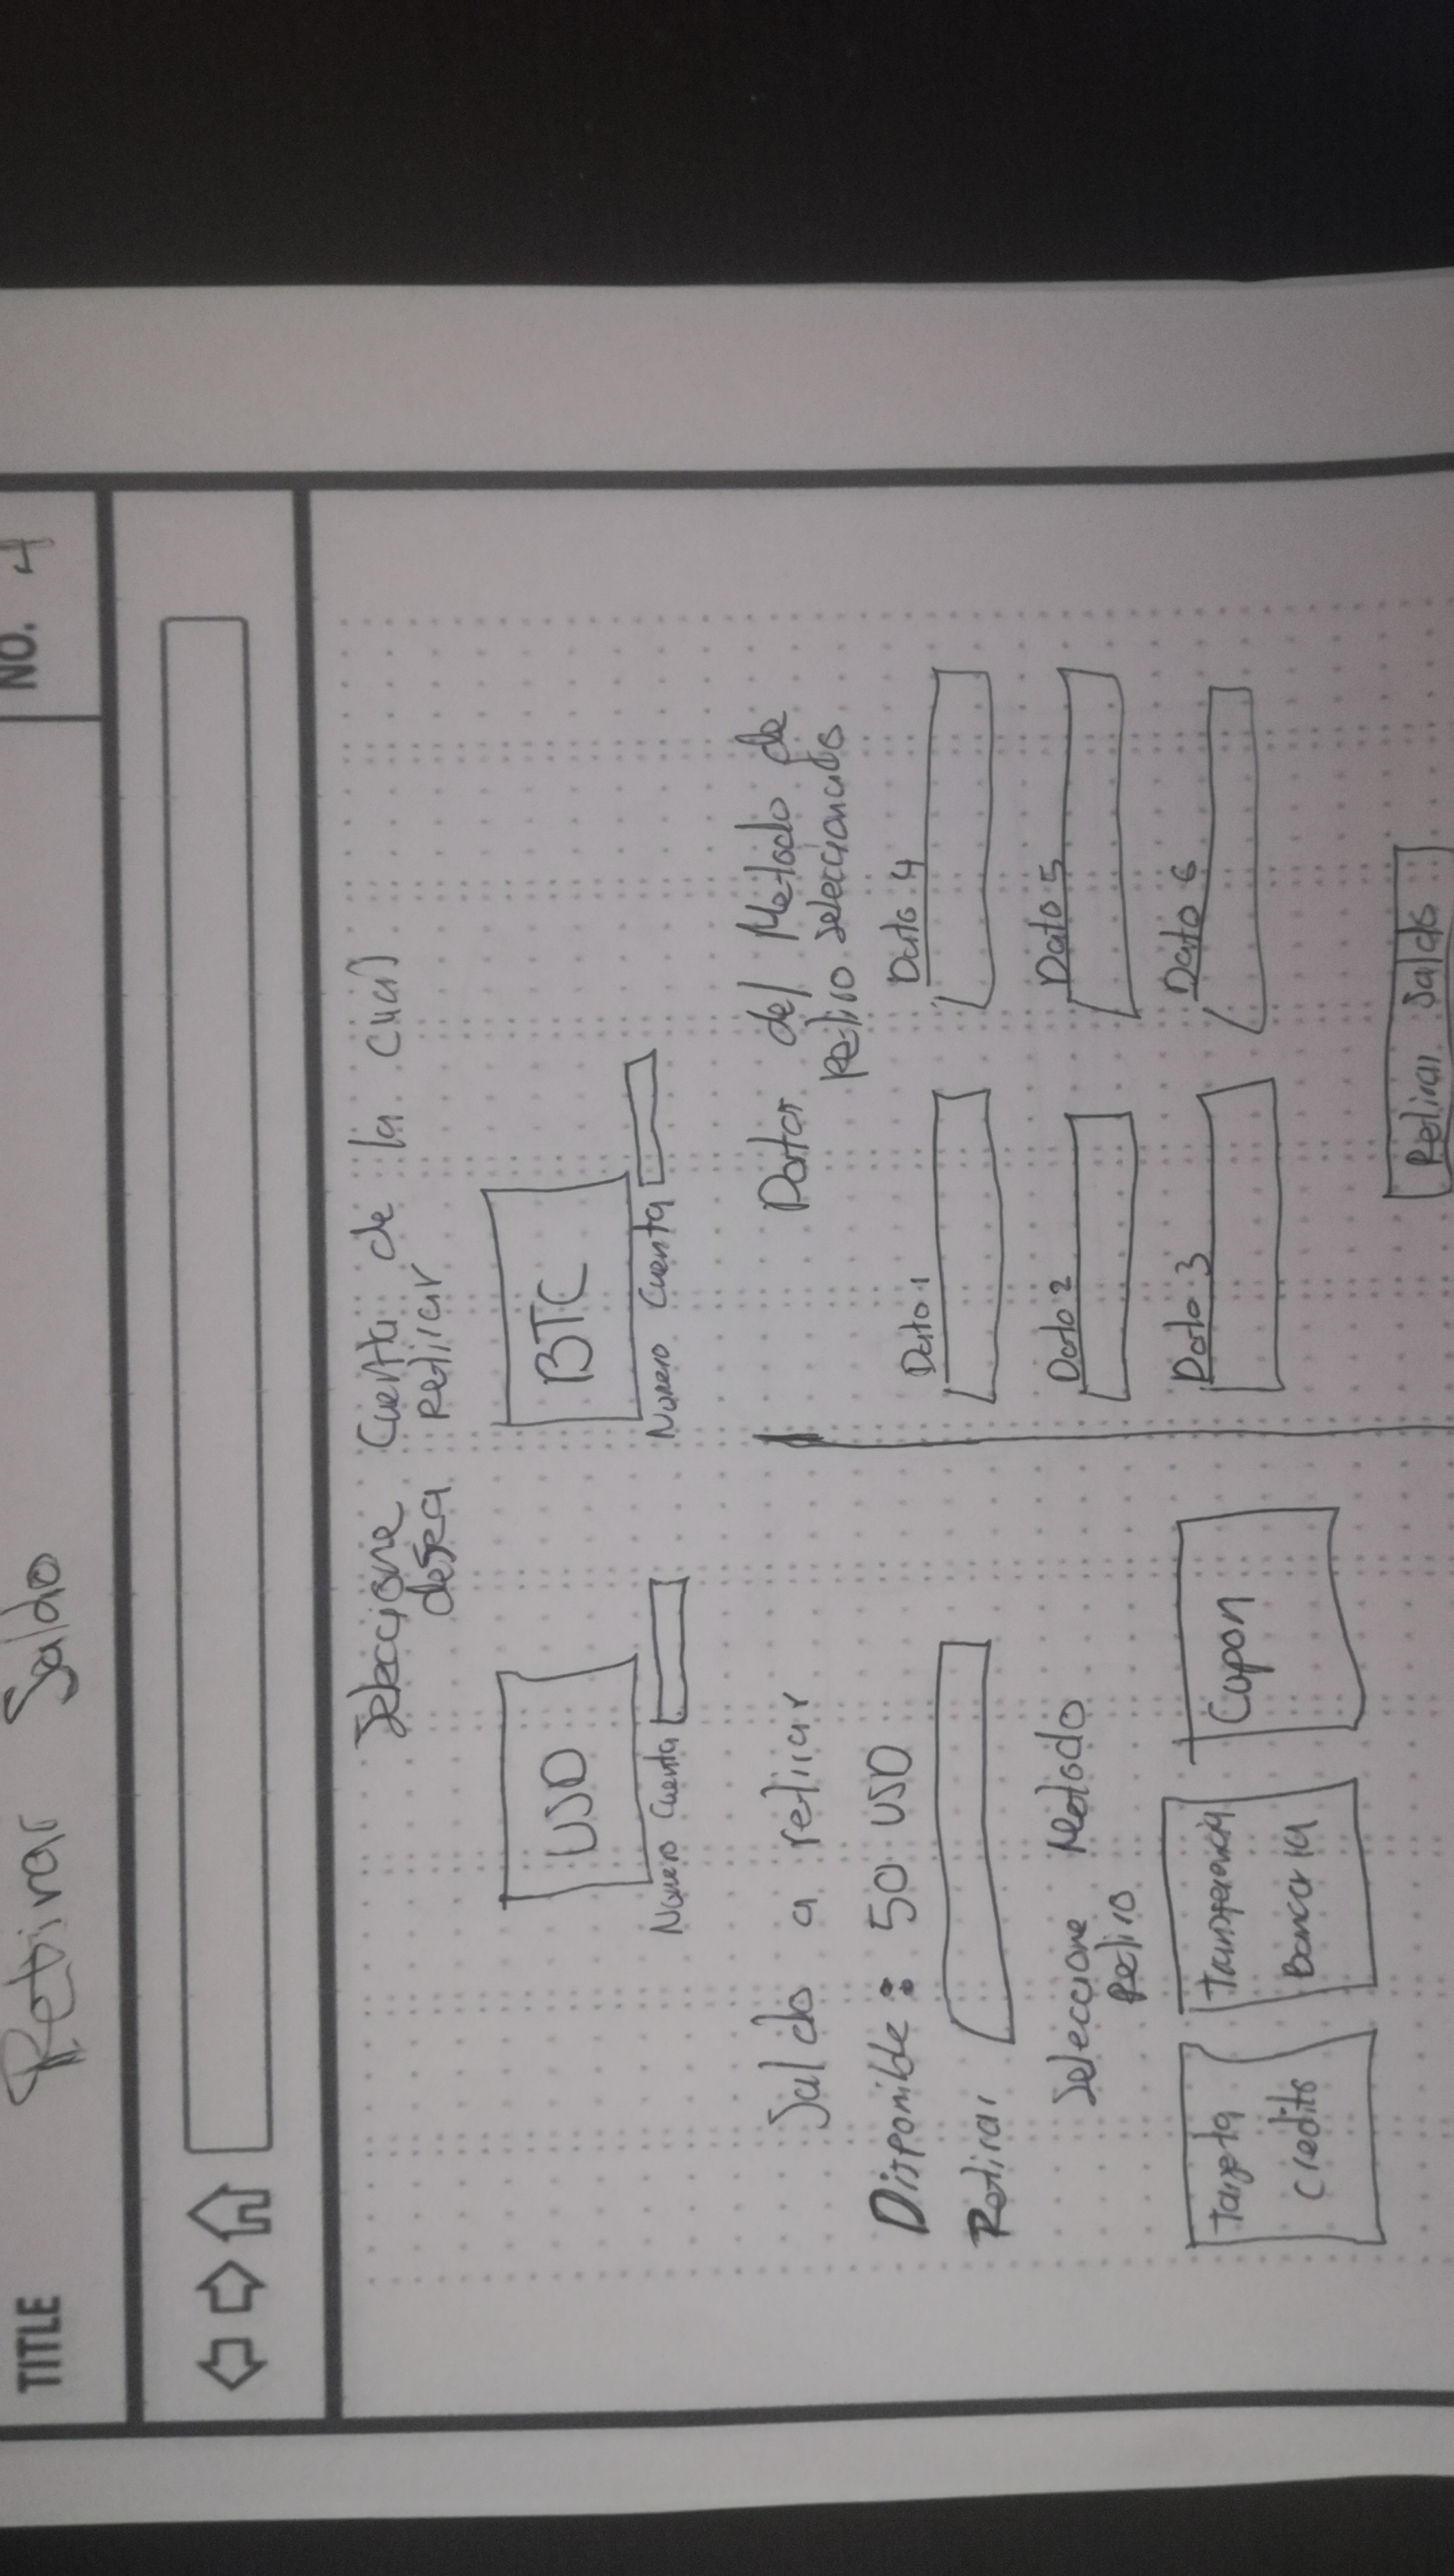 TITLE Retirar Saldo NO. 4
Seleccione Cuenta de la cual
desea retirar
USD
BTC
Numero Cuenta
Numero Cuenta
Saldo a retirar
Disponible: 50 USD
Retirar
Seleccione Metodo
Retiro
Tarjeta
Credito
Transferencia
Bancaria
Cupon
Datos del Metodo de
Retiro seleccionado
Dato 1
Dato 4
Dato 2
Dato 5
Dato 3
Dato 6
Retirar Saldo